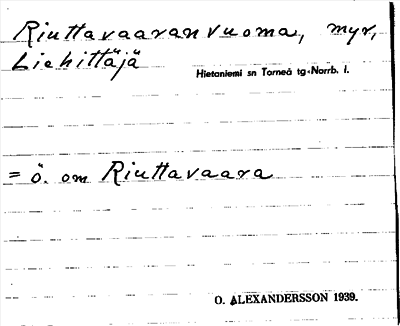 Riuttavaaranvuoma, myr,
Liehittäjä
Hietaniemi sn Torneå tg. Norrb. l.
= ö. om Riuttavaara
O. ALEXANDERSSON 1939.